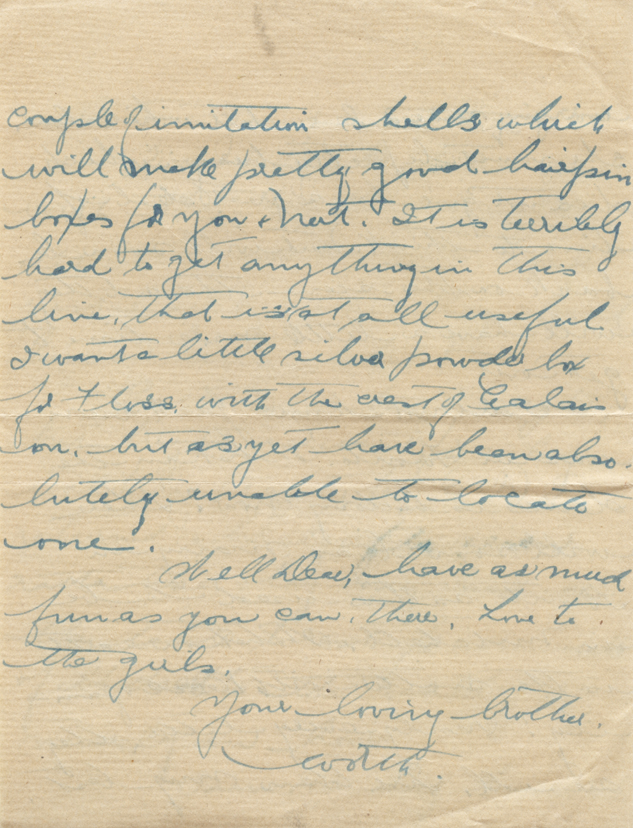 couple of imitation shells which
will make pretty good hairpin
boxes for you & Nat. It is terribly
hard to get anything in this
line, that is at all useful.
I want a little silver powder box
for Floss, with the crest of Calais
on, but as yet have been abso-
lutely unable to locate
one.
Well Dear, have as much
fun as you can there. Love to
the girls.
Your loving brother.
Worth.